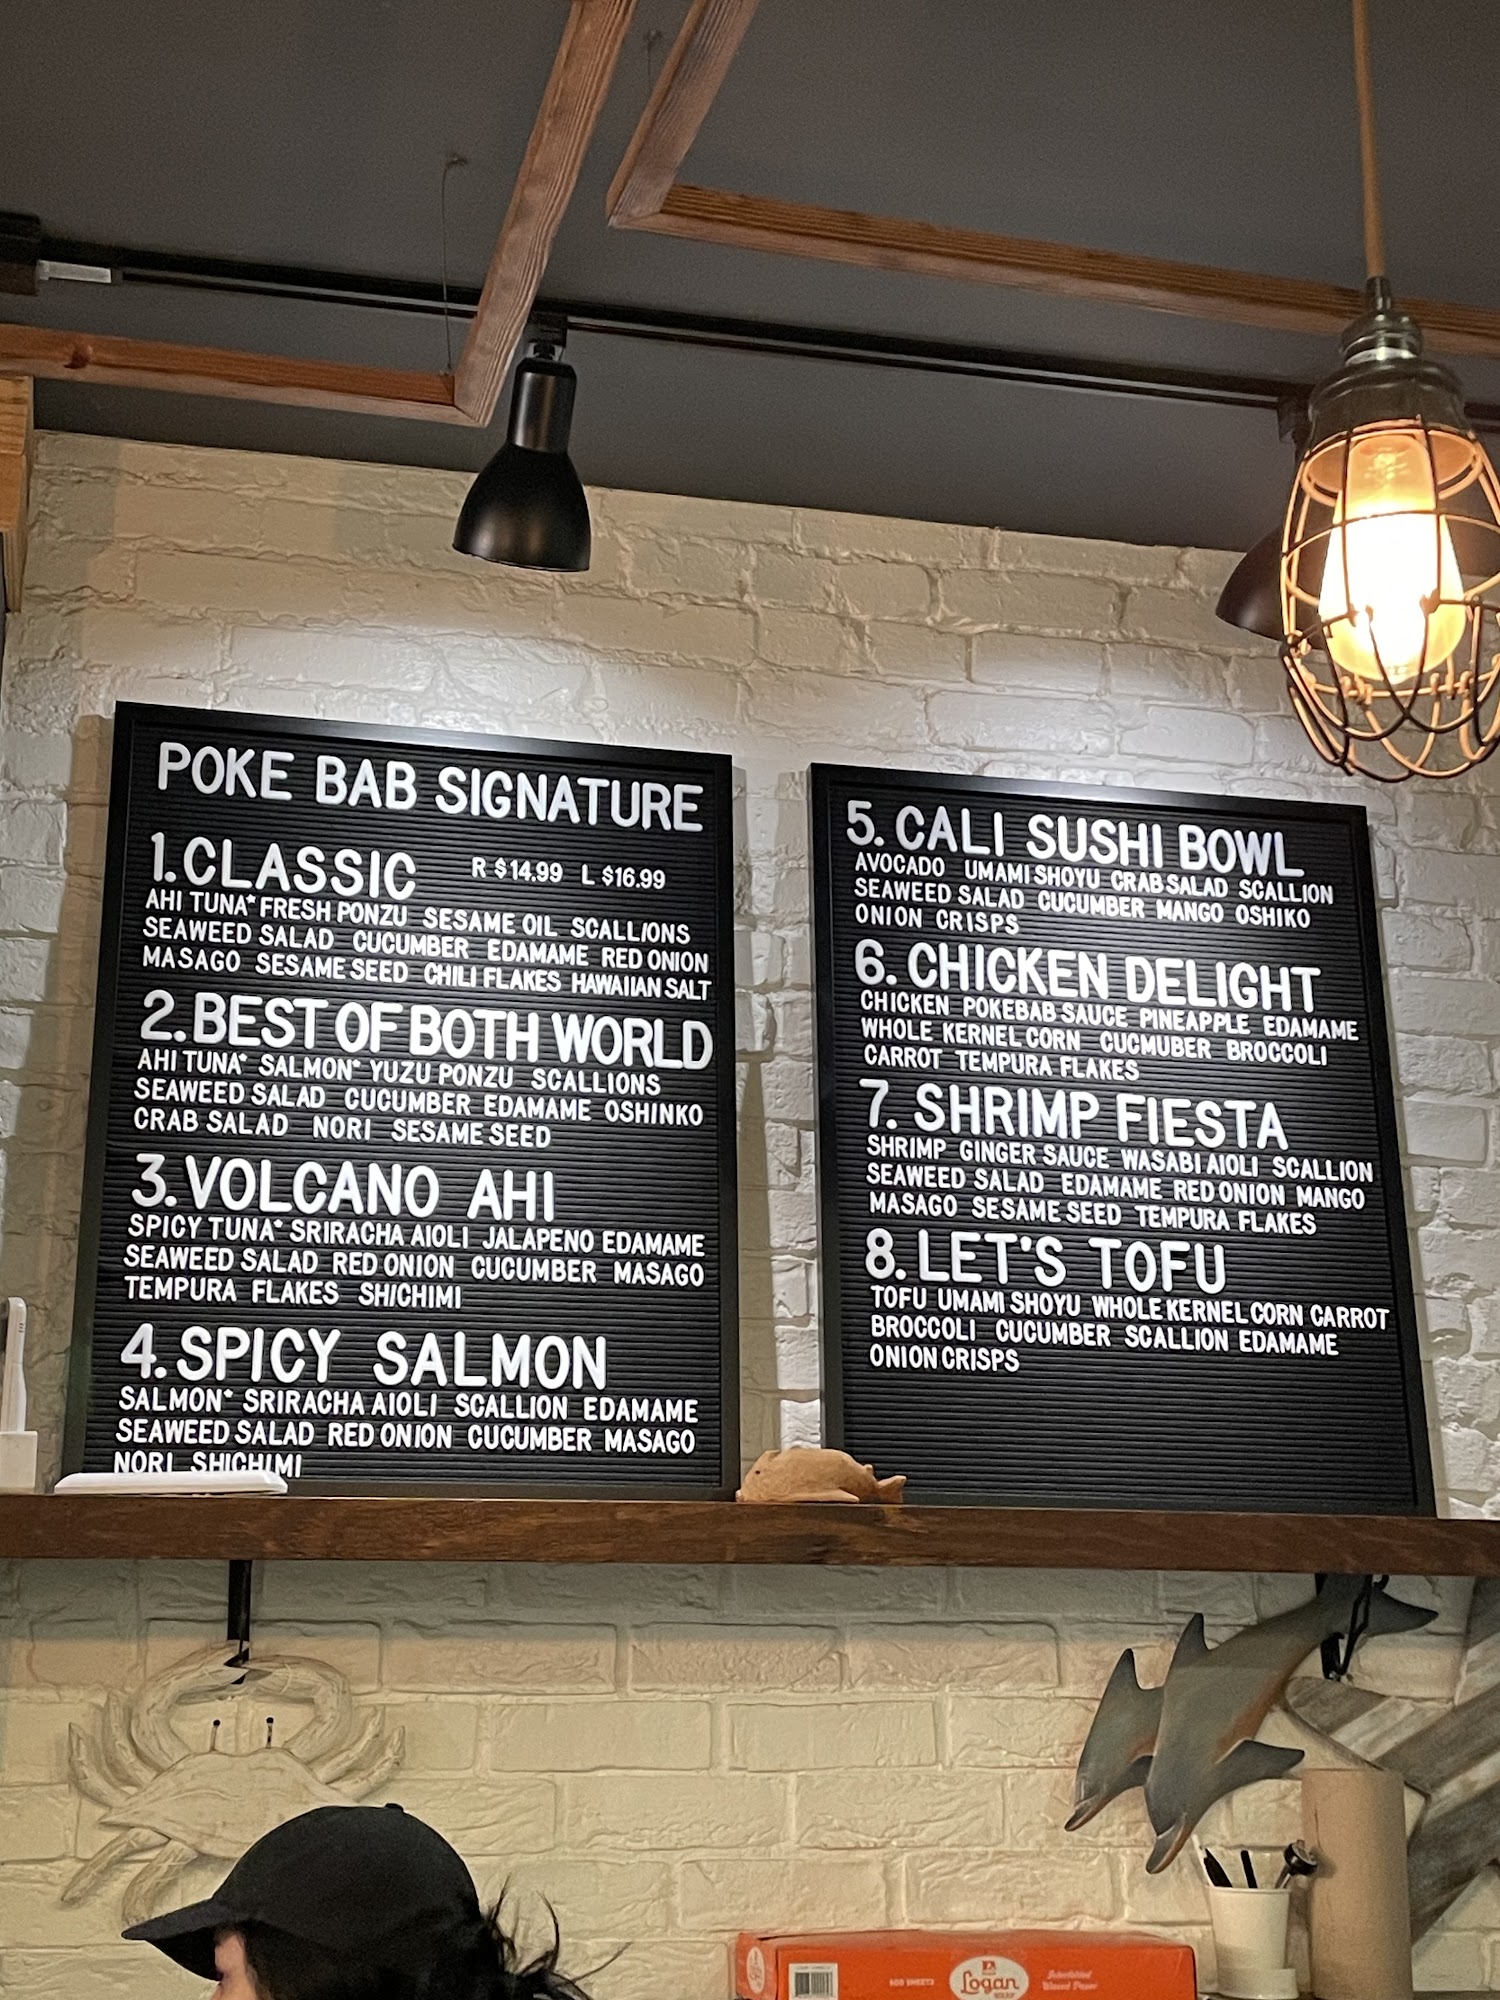 POKE BAB SIGNATURE
1. CLASSIC R $14.99 L $16.99
AHI TUNA* FRESH PONZU SESAME OIL SCALLIONS
SEAWEED SALAD CUCUMBER EDAMAME RED ONION
MASAGO SESAME SEED CHILI FLAKES HAWAIIAN SALT
2. BEST OF BOTH WORLD
AHI TUNA* SALMON* YUZU PONZU SCALLIONS
SEAWEED SALAD CUCUMBER EDAMAME OSHINKO
CRAB SALAD NORI SESAME SEED
3. VOLCANO AHI
SPICY TUNA* SRIRACHA AIOLI JALAPENO EDAMAME
SEAWEED SALAD RED ONION CUCUMBER MASAGO
TEMPURA FLAKES SHICHIMI
4. SPICY SALMON
SALMON* SRIRACHA AIOLI SCALLION EDAMAME
SEAWEED SALAD RED ONION CUCUMBER MASAGO
NORI SHICHIMI
5. CALI SUSHI BOWL
AVOCADO UMAMI SHOYU CRAB SALAD SCALLION
SEAWEED SALAD CUCUMBER MANGO OSHIKO
ONION CRISPS
6. CHICKEN DELIGHT
CHICKEN POKEBAB SAUCE PINEAPPLE EDAMAME
WHOLE KERNEL CORN CUCMUBER BROCCOLI
CARROT TEMPURA FLAKES
7. SHRIMP FIESTA
SHRIMP GINGER SAUCE WASABI AIOLI SCALLION
SEAWEED SALAD EDAMAME RED ONION MANGO
MASAGO SESAME SEED TEMPURA FLAKES
8. LET'S TOFU
TOFU UMAMI SHOYU WHOLE KERNEL CORN CARROT
BROCCOLI CUCUMBER SCALLION EDAMAME
ONION CRISPS
500 SHEETS
Logan
Interfolded
Waxed Paper